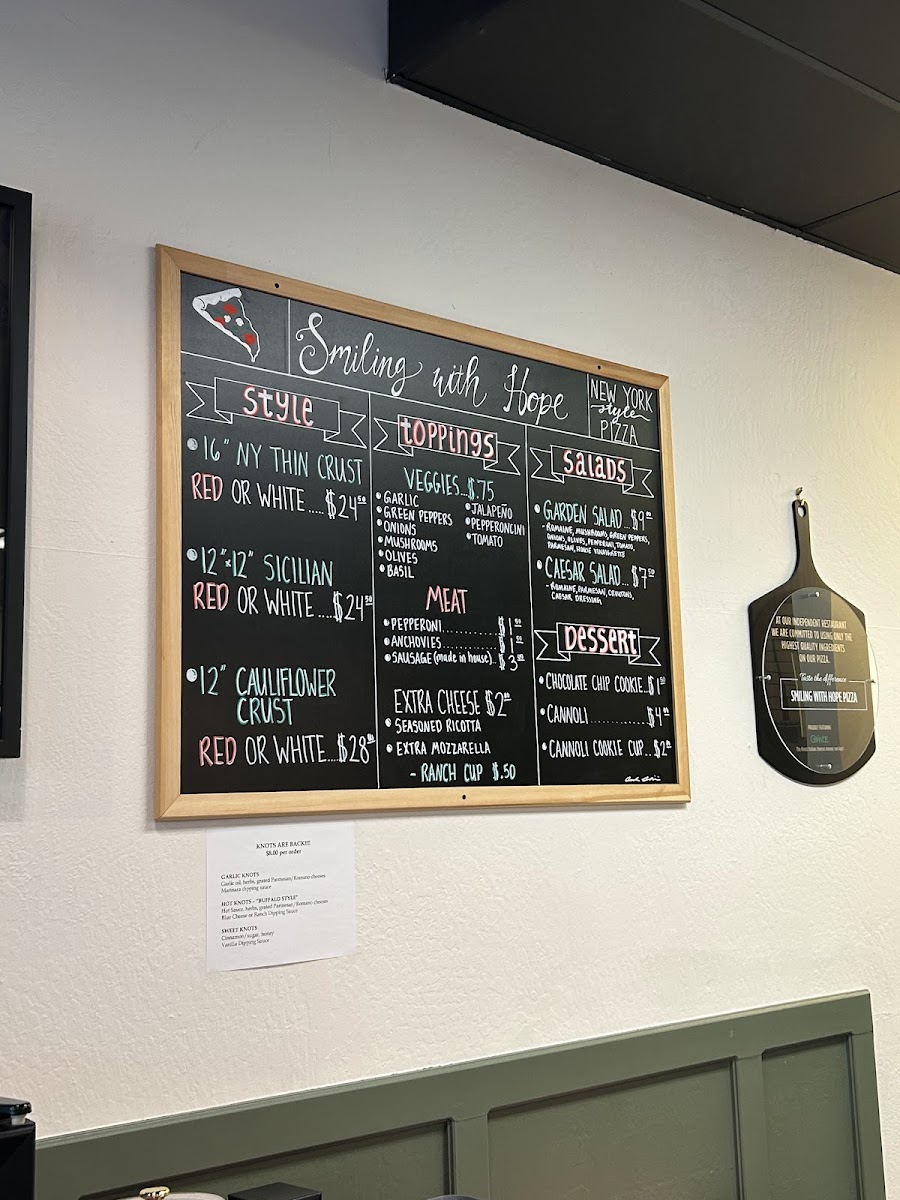 Smiling with Hope
NEW YORK
style
PIZZA
Style
• 16" NY THIN CRUST
RED OR WHITE.....$24⁵⁰
• 12"×12" SICILIAN
RED OR WHITE.....$24⁵⁰
• 12" CAULIFLOWER
CRUST
RED OR WHITE...$28⁰⁰
TOPPINGS
VEGGIES...$.75
• GARLIC
• GREEN PEPPERS
• ONIONS
• MUSHROOMS
• OLIVES
• BASIL
• JALAPEÑO
• PEPPERONCINI
• TOMATO
MEAT
• PEPPERONI............$1⁵⁰
• ANCHOVIES............$1⁵⁰
• SAUSAGE (made in house)..$3⁰⁰
EXTRA CHEESE $2⁰⁰
• SEASONED RICOTTA
• EXTRA MOZZARELLA
- RANCH CUP $.50
SALADS
• GARDEN SALAD...$9⁰⁰
- ROMAINE, MUSHROOMS, GREEN PEPPERS,
ONIONS, OLIVES, PEPPERONI, TOMATO,
PARMESAN, HOUSE VINAIGRETTE
• CAESAR SALAD...$7⁵⁰
- ROMAINE, PARMESAN, CROUTONS,
CAESAR DRESSING
DESSERT
• CHOCOLATE CHIP COOKIE..$1⁵⁰
• CANNOLI............$4⁰⁰
• CANNOLI COOKIE CUP..$2⁰⁰
KNOTS ARE BACK!!!
$8.00 per order
GARLIC KNOTS
Garlic oil, herbs, grated Parmesan/Romano cheeses
Marinara dipping sauce
HOT KNOTS - "BUFFALO STYLE"
Hot Sauce, herbs, grated Parmesan/Romano cheeses
Blue Cheese or Ranch Dipping Sauce
SWEET KNOTS
Cinnamon/sugar, honey
Vanilla Dipping Sauce
AT OUR INDEPENDENT RESTAURANT
WE ARE COMMITTED TO USING ONLY THE
HIGHEST QUALITY INGREDIENTS
ON OUR PIZZA.
Taste the difference
SMILING WITH HOPE PIZZA
PROUDLY FEATURING
Grande